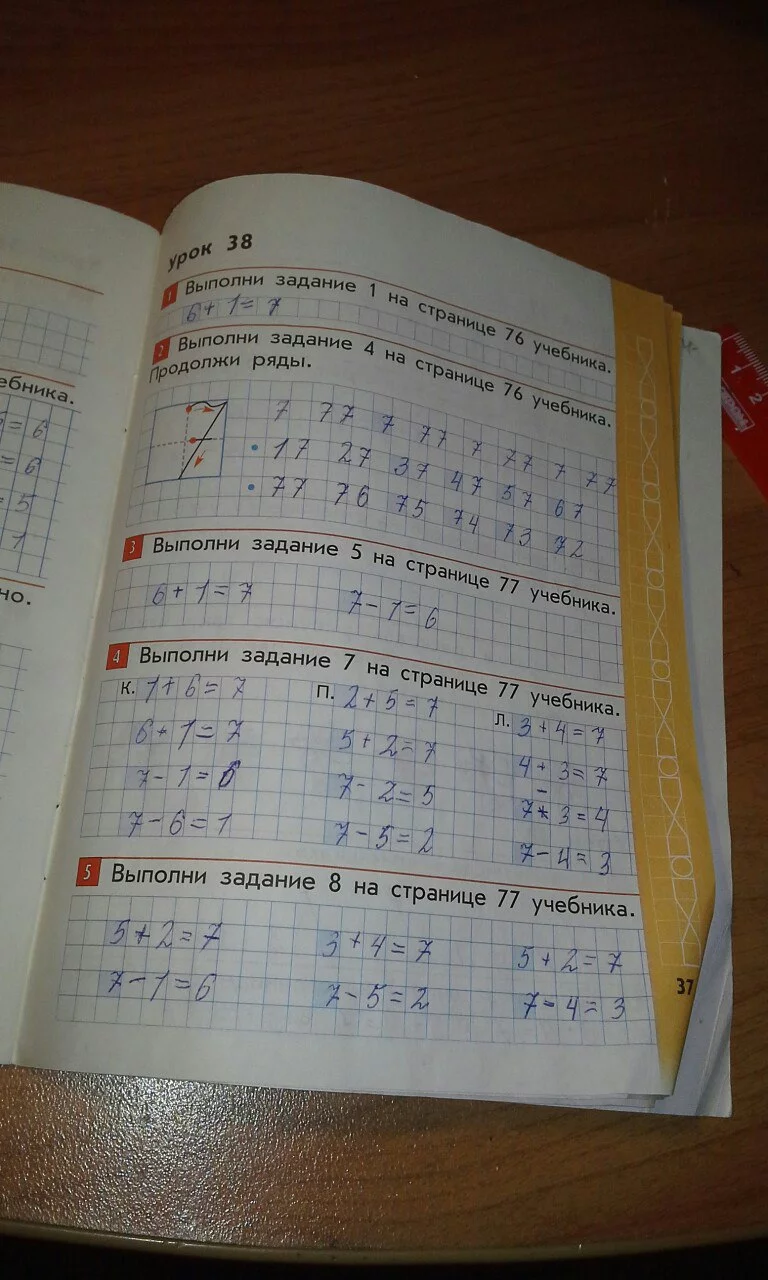 Урок 38
1 Выполни задание 1 на странице 76 учебника.
6 + 1 = 7
2 Выполни задание 4 на странице 76 учебника.
Продолжи ряды.
7 77 7 77 7 77 7 77
• 17 27 37 47 57 67
• 77 76 75 74 73 72
3 Выполни задание 5 на странице 77 учебника.
6 + 1 = 7 7 - 1 = 6
4 Выполни задание 7 на странице 77 учебника.
К. 1 + 6 = 7 П. 2 + 5 = 7 Л. 3 + 4 = 7
6 + 1 = 7 5 + 2 = 7 4 + 3 = 7
7 - 1 = 6 7 - 2 = 5 7 - 3 = 4
7 - 6 = 1 7 - 5 = 2 7 - 4 = 3
5 Выполни задание 8 на странице 77 учебника.
5 + 2 = 7 3 + 4 = 7 5 + 2 = 7
7 - 1 = 6 7 - 5 = 2 7 - 4 = 3
37
ебника.
= 6
= 6
= 5
1
но.
1 2